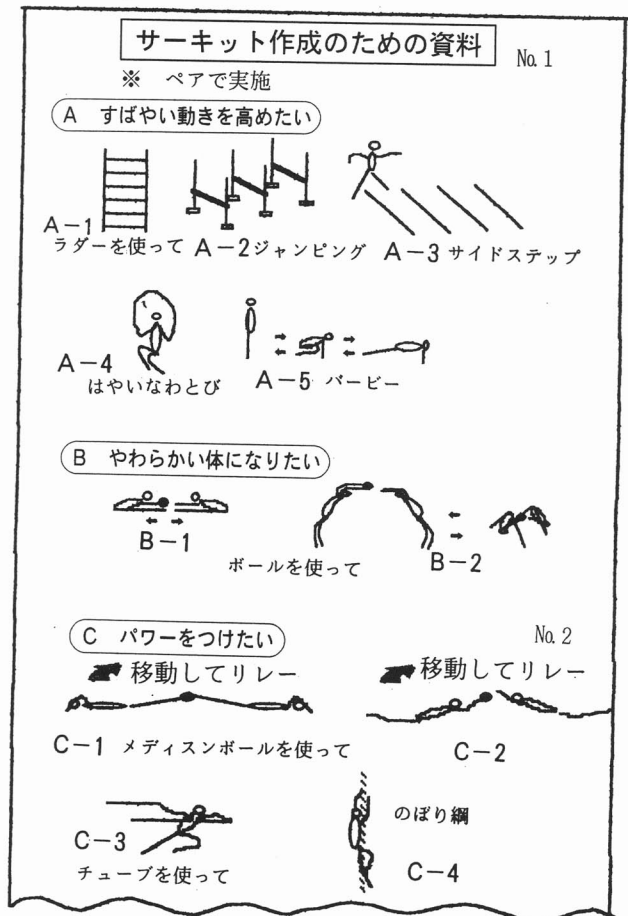 サーキット作成のための資料 No.1
※ ペアで実施
A すばやい動きを高めたい
A-1
ラダーを使って A-2ジャンピング A-3 サイドステップ
A-4
はやいなわとび A-5 バービー
B やわらかい体になりたい
B-1
ボールを使って B-2
C パワーをつけたい No.2
移動してリレー 移動してリレー
C-1 メディスンボールを使って C-2
C-3 のぼり綱
チューブを使って C-4